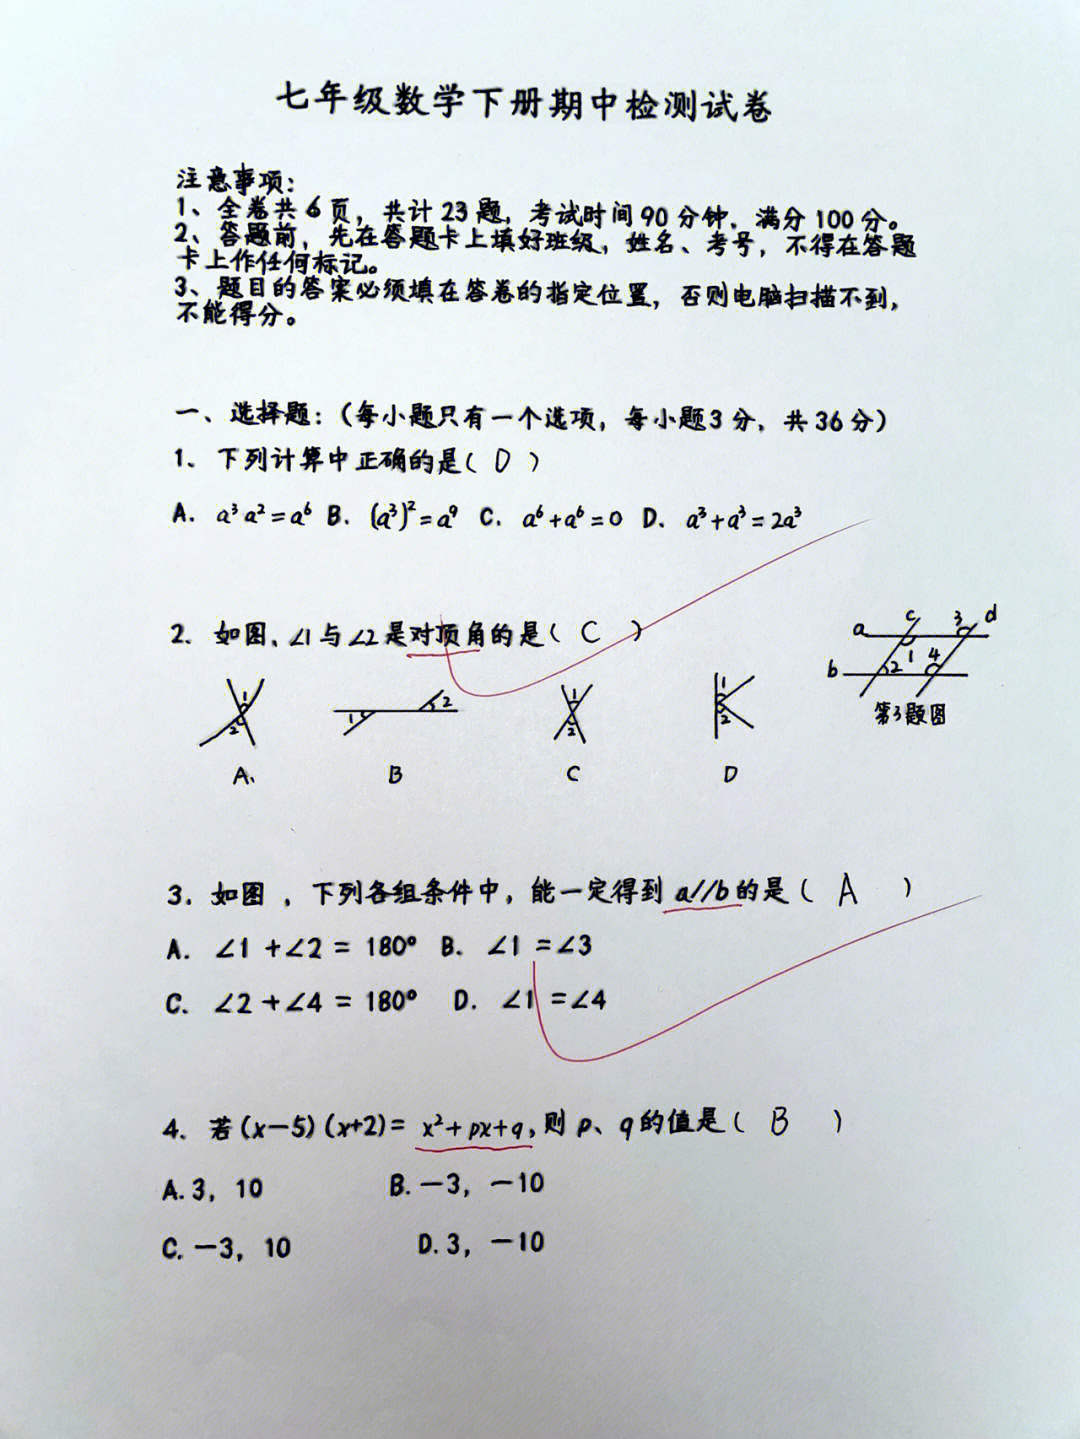 七年级数学下册期中检测试卷
注意事项：
1、全卷共6页，共计23题，考试时间90分钟，满分100分。
2、答题前，先在答题卡上填好班级，姓名、考号，不得在答题
卡上作任何标记。
3、题目的答案必须填在答卷的指定位置，否则电脑扫描不到，
不能得分。
一、选择题：（每小题只有一个选项，每小题3分，共36分）
1. 下列计算中正确的是（ D ）
A. a³a²=a⁶ B. (a³)²=a⁹ C. a⁶+a⁶=0 D. a³+a³=2a³
2. 如图、∠1与∠2是对顶角的是（ C ）
1 2
1 2
1 2
1 2
A、 B C D
a b c d 1 2 3 4
第3题图
3. 如图，下列各组条件中，能一定得到a//b的是（ A ）
A. ∠1+∠2=180° B. ∠1=∠3
C. ∠2+∠4=180° D. ∠1=∠4
4. 若(x-5)(x+2)=x²+px+q，则p、q的值是（ B ）
A.3，10 B.-3，-10
C.-3，10 D.3，-10